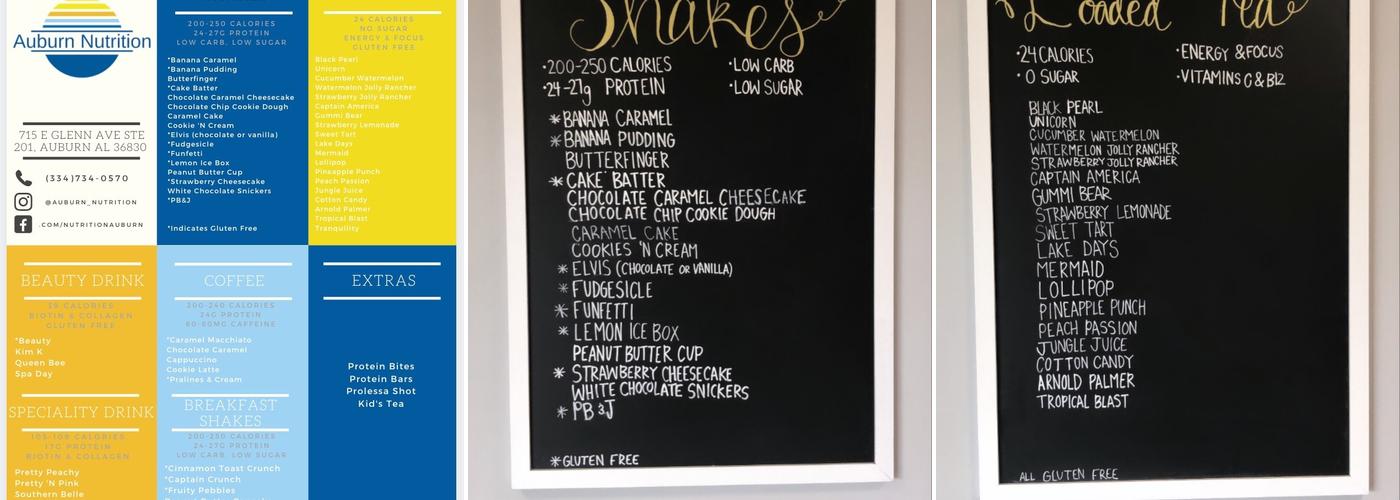 Auburn Nutrition
715 E GLENN AVE STE
201, AUBURN AL 36830
(334)734-0570
@AUBURN_NUTRITION
.COM/NUTRITIONAUBURN
200-250 CALORIES
24-27G PROTEIN
LOW CARB, LOW SUGAR
*Banana Caramel
*Banana Pudding
Butterfinger
*Cake Batter
Chocolate Caramel Cheesecake
Chocolate Chip Cookie Dough
Caramel Cake
Cookie 'N Cream
*Elvis (chocolate or vanilla)
*Fudgesicle
*Funfetti
*Lemon Ice Box
Peanut Butter Cup
*Strawberry Cheesecake
White Chocolate Snickers
*PB&J
*Indicates Gluten Free
24 CALORIES
NO SUGAR
ENERGY & FOCUS
GLUTEN FREE
Black Pearl
Unicorn
Cucumber Watermelon
Watermelon Jolly Rancher
Strawberry Jolly Rancher
Captain America
Gummi Bear
Strawberry Lemonade
Sweet Tart
Lake Days
Mermaid
Lollipop
Pineapple Punch
Peach Passion
Jungle Juice
Cotton Candy
Arnold Palmer
Tropical Blast
Tranquility
BEAUTY DRINK
BIOTIN & COLLAGEN
GLUTEN FREE
*Beauty
Kim K
Queen Bee
Spa Day
SPECIALITY DRINK
17G PROTEIN
BIOTIN & COLLAGEN
Pretty Peachy
Pretty 'N Pink
Southern Belle
COFFEE
200-240 CALORIES
24G PROTEIN
80-80MG CAFFEINE
*Caramel Macchiato
Chocolate Caramel
Cappuccino
Cookie Latte
*Pralines & Cream
BREAKFAST
SHAKES
200-250 CALORIES
24-27G PROTEIN
LOW CARB, LOW SUGAR
*Cinnamon Toast Crunch
*Captain Crunch
*Fruity Pebbles
EXTRAS
Protein Bites
Protein Bars
Prolessa Shot
Kid's Tea
Shakes
•200-250 CALORIES
•24-27g PROTEIN
•LOW CARB
•LOW SUGAR
*BANANA CARAMEL
*BANANA PUDDING
BUTTERFINGER
*CAKE BATTER
CHOCOLATE CARAMEL CHEESECAKE
CHOCOLATE CHIP COOKIE DOUGH
CARAMEL CAKE
COOKIES 'N CREAM
*ELVIS (CHOCOLATE OR VANILLA)
*FUDGESICLE
*FUNFETTI
*LEMON ICE BOX
PEANUT BUTTER CUP
*STRAWBERRY CHEESECAKE
WHITE CHOCOLATE SNICKERS
*PB&J
*GLUTEN FREE
Loaded Tea
•24 CALORIES
•0 SUGAR
•ENERGY & FOCUS
•VITAMINS C & B12
BLACK PEARL
UNICORN
CUCUMBER WATERMELON
WATERMELON JOLLY RANCHER
STRAWBERRY JOLLY RANCHER
CAPTAIN AMERICA
GUMMI BEAR
STRAWBERRY LEMONADE
SWEET TART
LAKE DAYS
MERMAID
LOLLIPOP
PINEAPPLE PUNCH
PEACH PASSION
JUNGLE JUICE
COTTON CANDY
ARNOLD PALMER
TROPICAL BLAST
ALL GLUTEN FREE